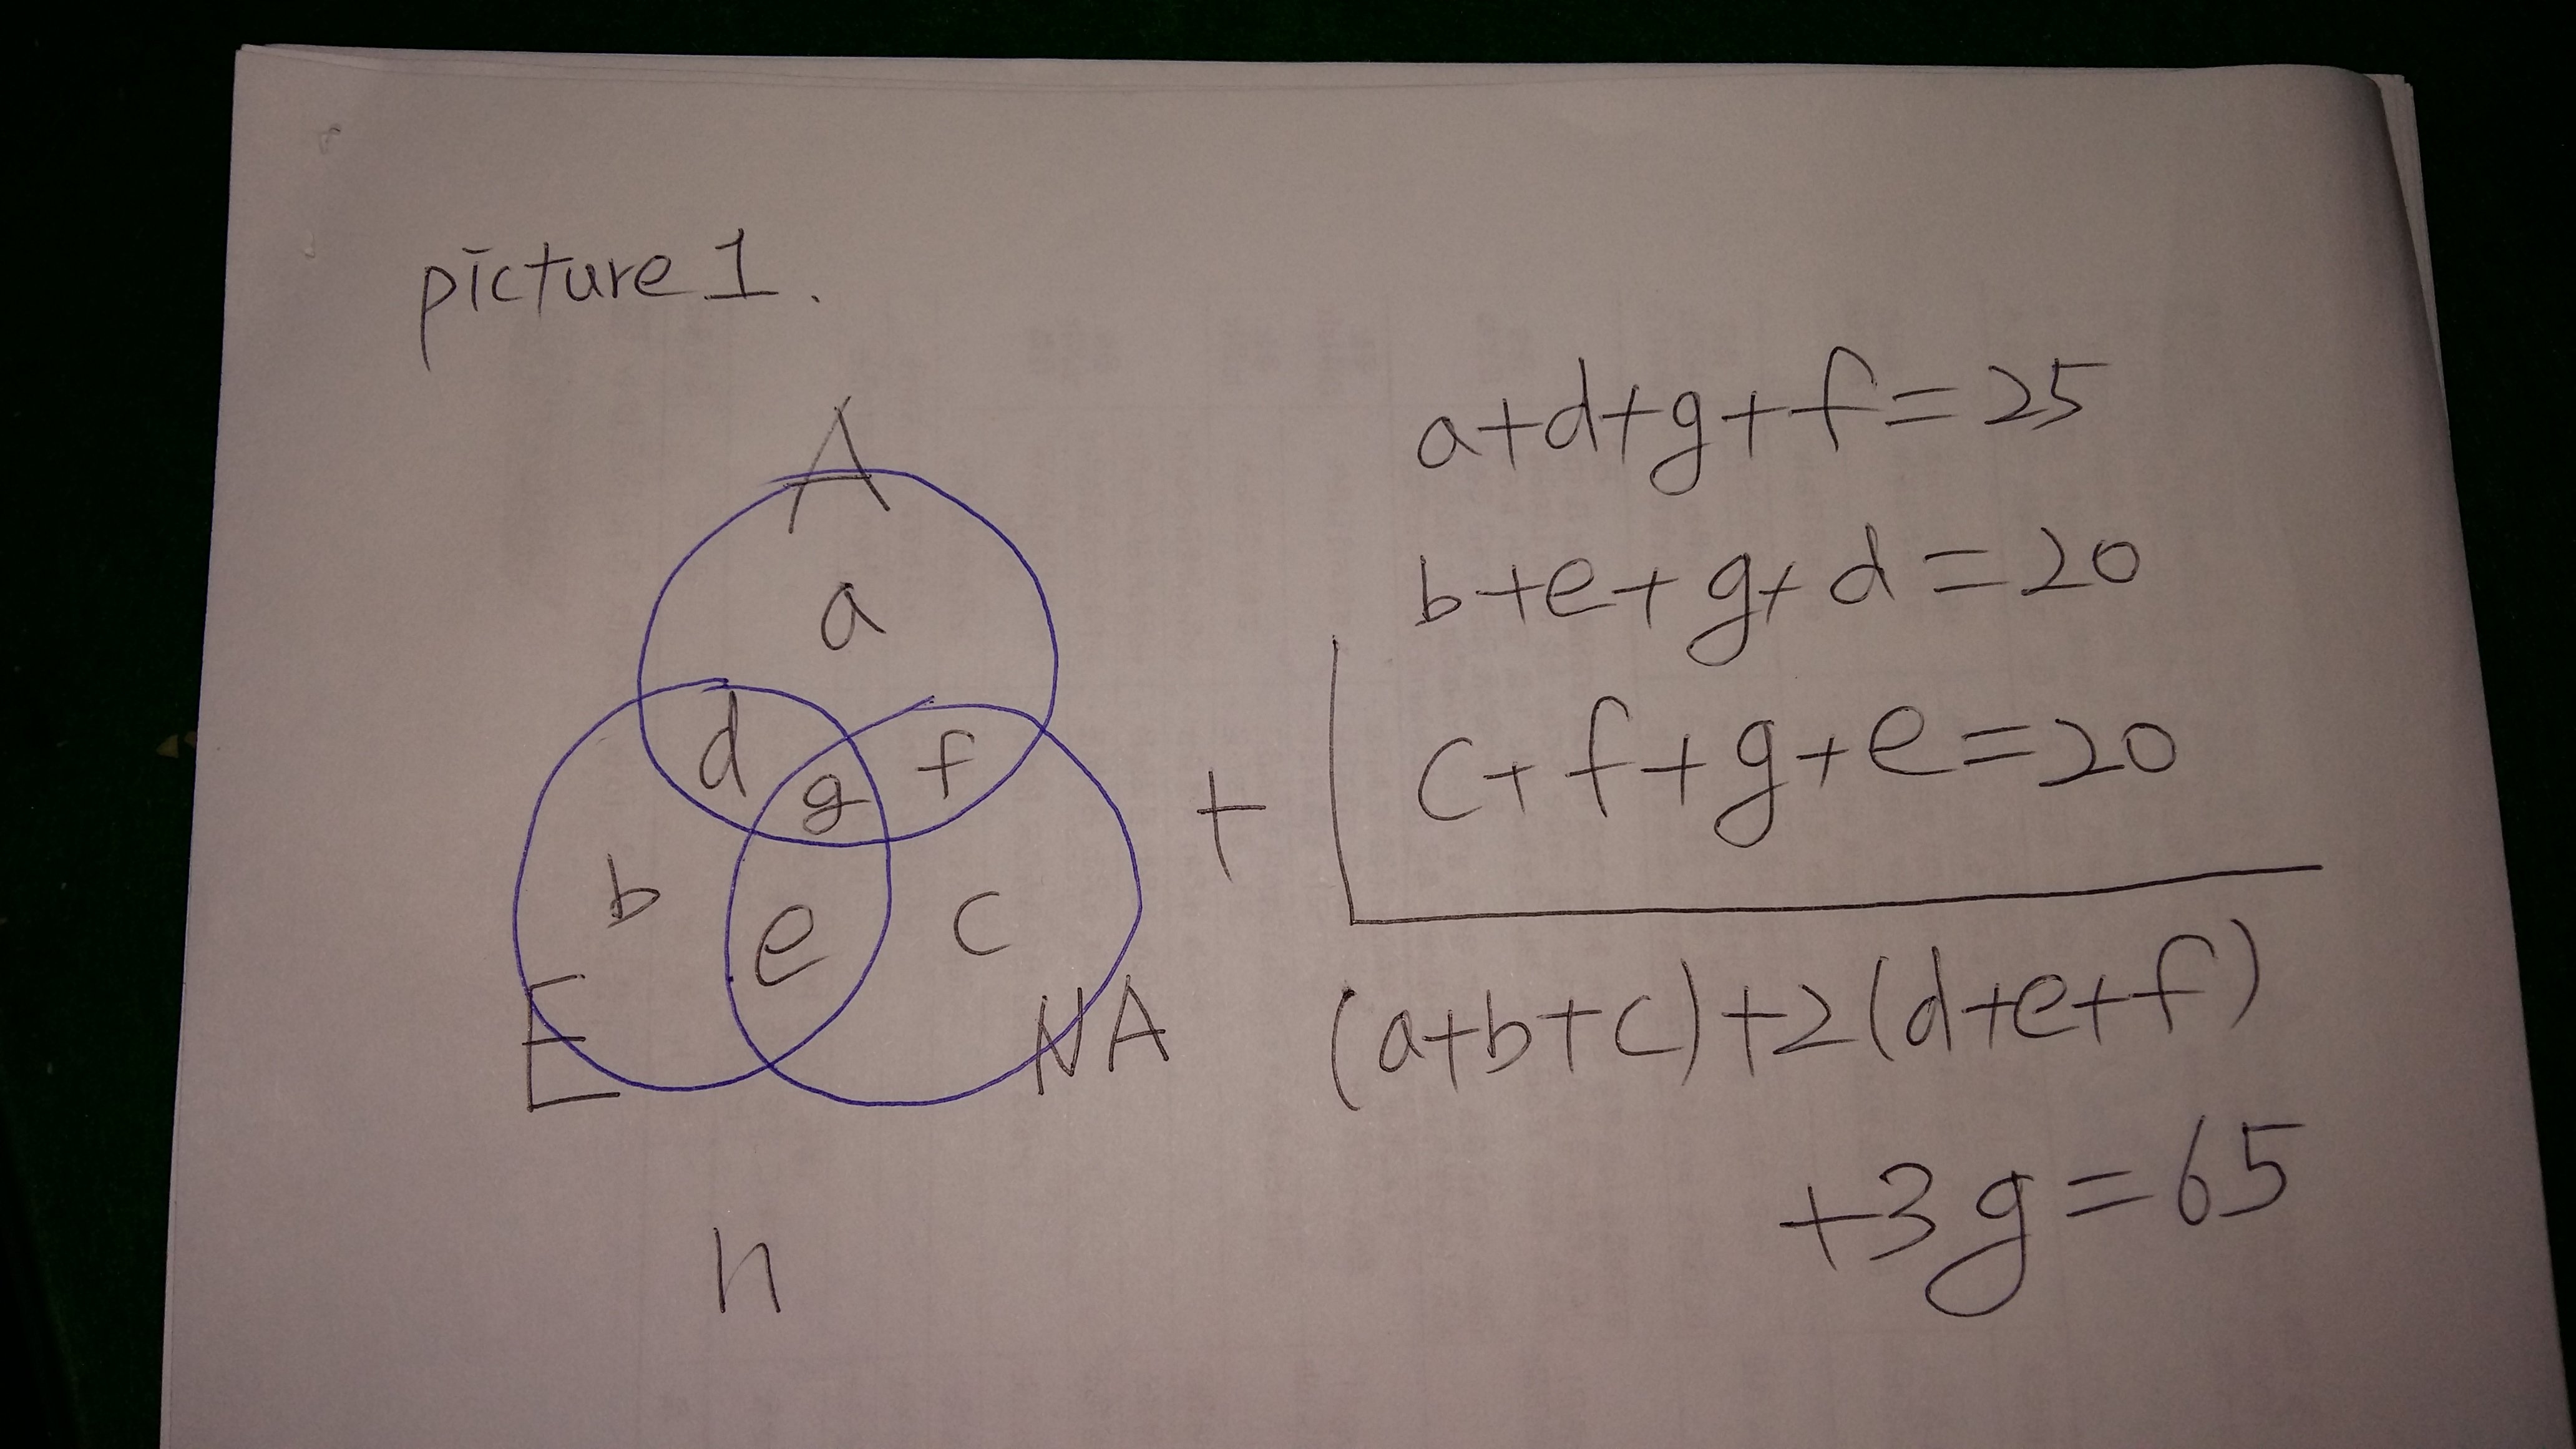 picture 1.
A
a
d
g
f
b
e
c
E
NA
h
a+d+g+f=25
b+e+g+d=20
+ c+f+g+e=20
(a+b+c)+2(d+e+f)
+3g=65